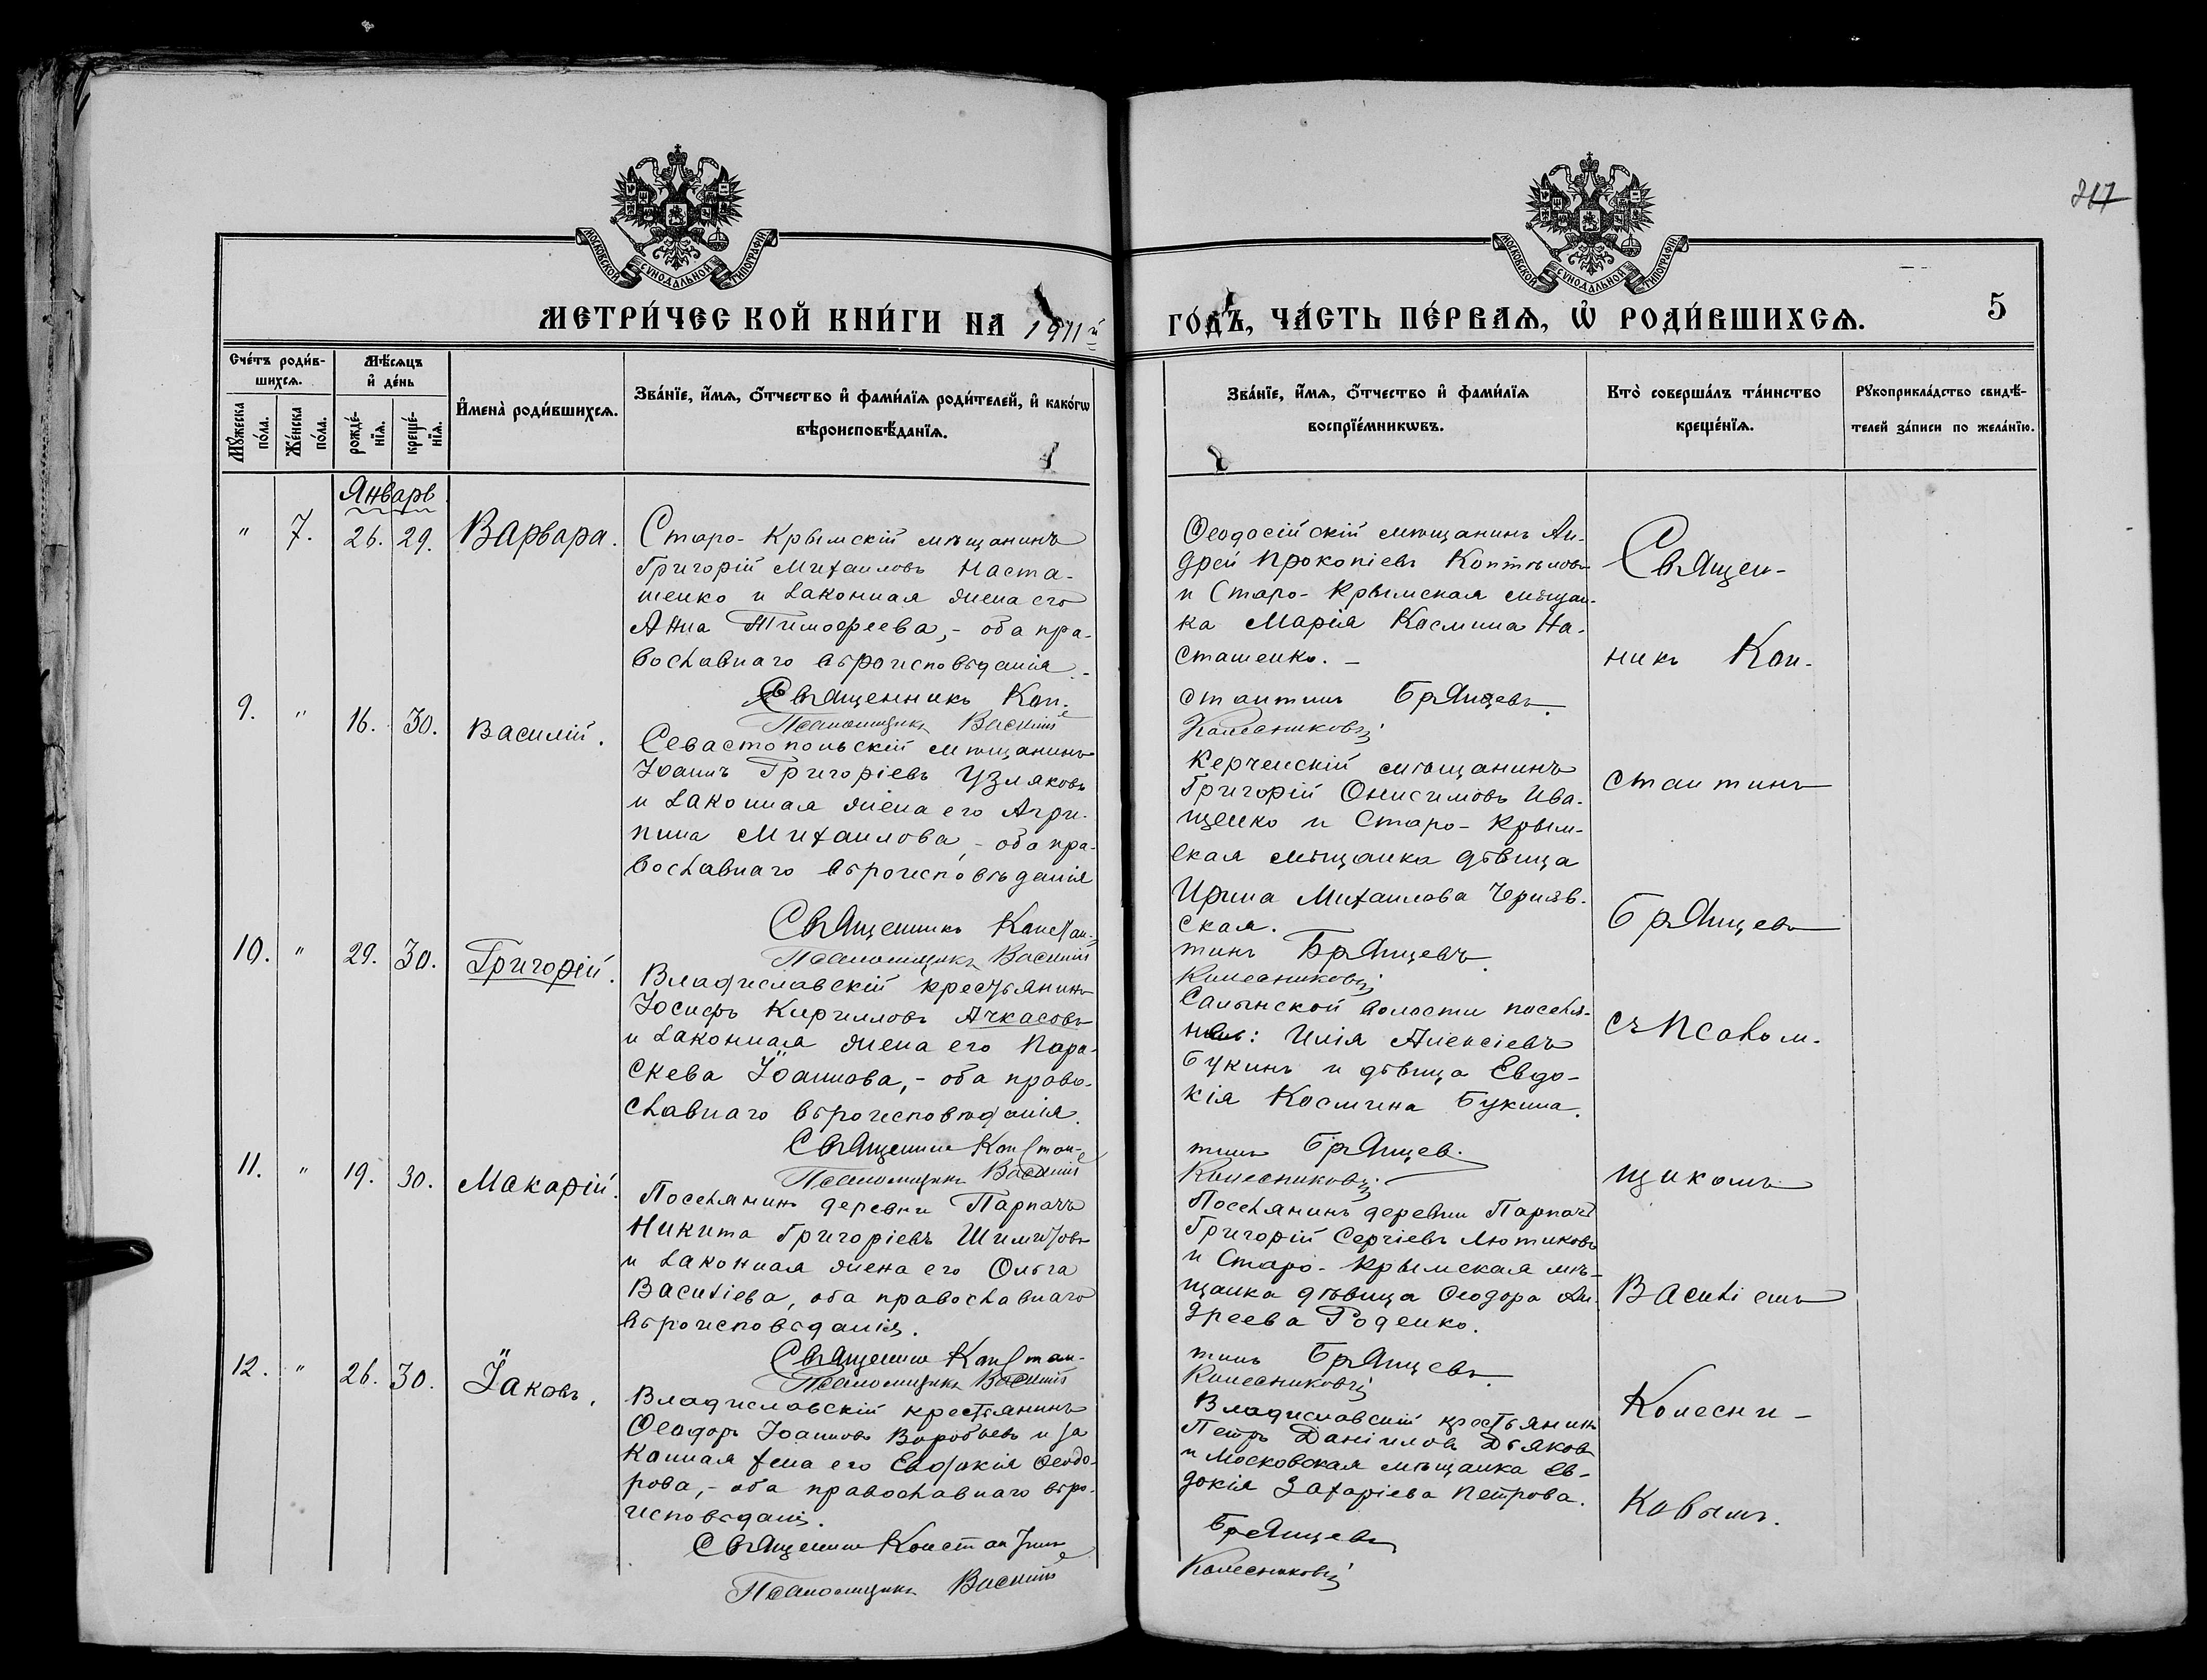 217
МОСКОВСКОЙ СѴНОДАЛЬНОЙ ТИПОГРАФІИ
МОСКОВСКОЙ СѴНОДАЛЬНОЙ ТИПОГРАФІИ
МЕТРИ́ЧЕСКОЙ КНИ́ГИ НА 1911й
ГО́ДЪ, ЧА́СТЬ ПЕ́РВАѦ, Ѡ҆ РОДИ́ВШИХСѦ.
5
Сче́тъ роди́в-
шихсѧ.
Мꙋ́жеска
по́ла.
Же́нска
по́ла.
Мѣ́сѧцъ
и҆ де́нь
рожде́-
нїѧ.
креще́-
нїѧ.
И҆мена̀ роди́вшихсѧ.
Зва́нїе, и҆́мѧ, ѻ҆́тчество и҆ фами́лїѧ роди́телей, и҆ како́гѡ
вѣроисповѣ́данїѧ.
Зва́нїе, и҆́мѧ, ѻ҆́тчество и҆ фами́лїѧ
воспрїе́мникѡвъ.
Кто̀ соверша́лъ та́инство
креще́нїѧ.
Рꙋкоприкла́дство свидѣ́-
телей за́писи по жела́нїю.
Январь
" 7. 26. 29. Варвара.
Старо-Крымскій мѣщанинъ
Григорій Михаиловъ Наста-
шенко и законная жена его
Анна Тимофеева,- оба пра-
вославнаго вѣроисповѣданія.-
Священникъ Кон-
Псаломщикъ Василій
Ѳеодосійскій мѣщанинъ Ан-
дрей Прокопіевъ Коптѣловъ
и Старо-Крымская мѣщан-
ка Марія Космина На-
сташенко.-
стантинъ Брянцевъ.
Колесниковъ
9. " 16. 30. Василій.
Севастопольскій мѣщанинъ
Іоаннъ Григоріевъ Узляковъ
и законная жена его Агри-
пина Михаилова,- оба пра-
вославнаго вѣроисповѣданія
Священникъ Констан-
Псаломщикъ Василій
Керченскій мѣщанинъ
Григорій Онисимовъ Ива-
щенко и Старо-Крым-
ская мѣщанка дѣвица
Ирина Михаилова Черняв-
ская.
тинъ Брянцевъ.
Колесниковъ
10. " 29. 30. Григорій.
Владиславскій крестьянинъ
Іосифъ Кирилловъ Ачкасовъ
и законная жена его Пара-
скева Іоаннова,- оба право-
славнаго вѣроисповѣданія.
Священникъ Констан-
Псаломщикъ Василій
Салынской волости поселя-
Илія Алексіевъ
Букинъ и дѣвица Евдо-
кія Космина Букина.
тинъ Брянцев.
Колесниковъ
11. " 19. 30. Макарій.
Поселянинъ деревни Парпачъ
Никита Григоріевъ
и законная жена его Ольга
Василіева, оба православнаго
вѣроисповѣданія.
Священникъ Констан-
Псаломщикъ Василій
Поселянинъ деревни Парпачъ
Григорій Сергіевъ Лютиковъ
и Старо-Крымская мѣ-
щанка дѣвица Ѳеодора Ан-
дреева Роденко.
тинъ Брянцевъ.
Колесниковъ
12. " 26. 30. Іаковъ.
Владиславскій крестьянинъ
Ѳеодоръ Іоанновъ Воробьевъ и за
конная жена его Евдокія Ѳеодо-
рова,- оба православнаго вѣро-
исповѣданія.
Священникъ Константинъ
Псаломщикъ Василій
Владиславскій крестьянинъ
Петръ Даніиловъ Дьяковъ
и Московская мѣщанка Ев-
докія Захаріева Петрова.
Брянцевъ
Колесниковъ
Священ-
никъ Кон-
стантинъ
Брянцевъ
съ псалом-
щикомъ
Василіемъ
Колесни-
ковымъ.